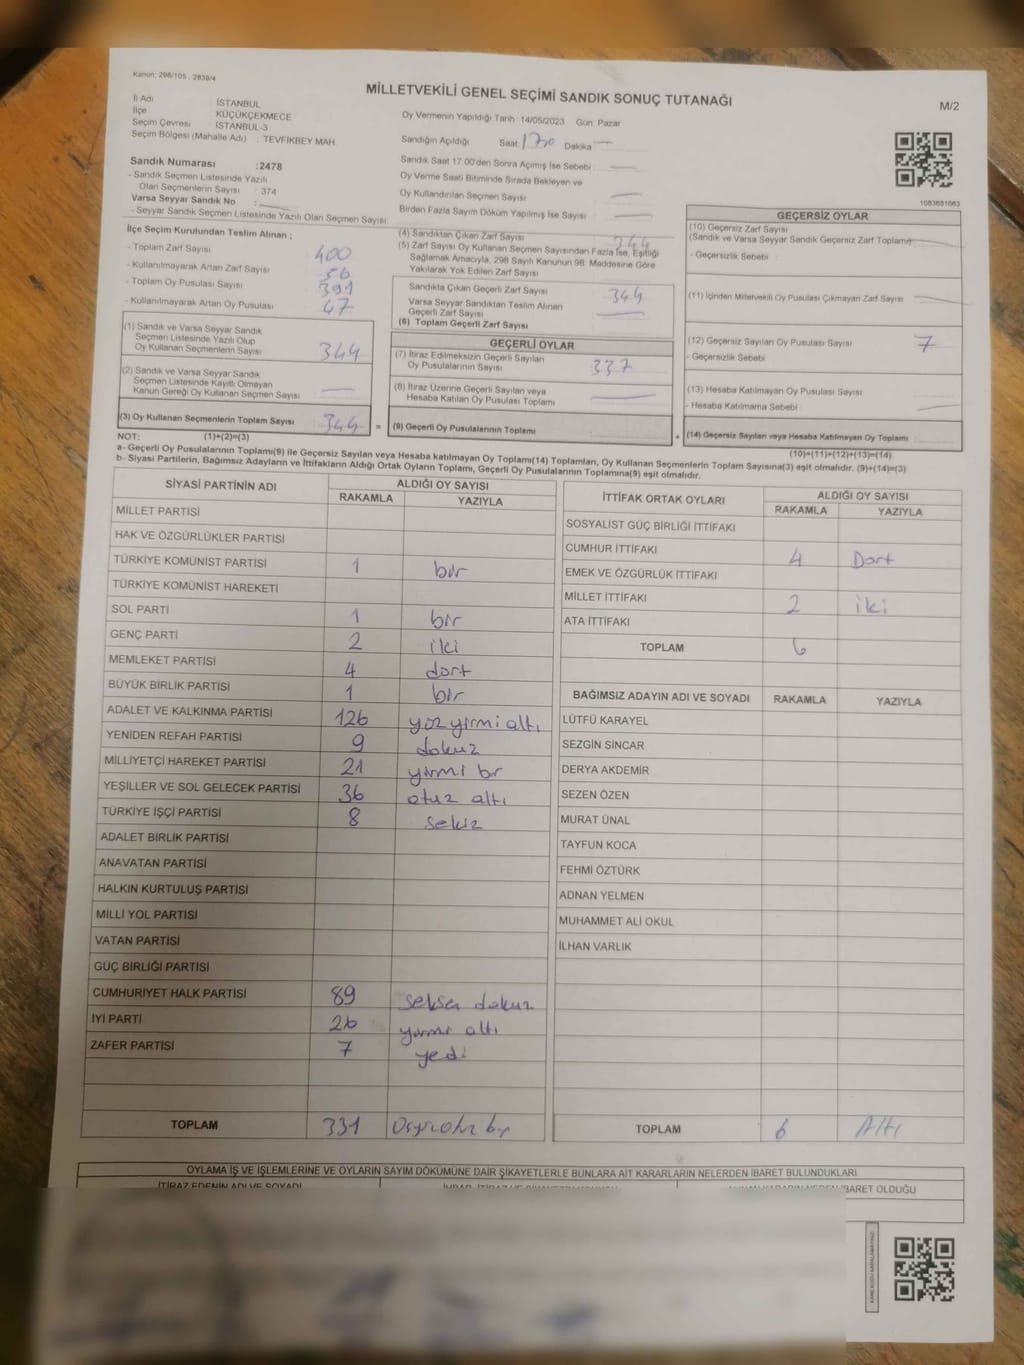 Kanun: 298/105 , 2839/4
MİLLETVEKİLİ GENEL SEÇİMİ SANDIK SONUÇ TUTANAĞI
M/2
İl Adı : İSTANBUL
İlçe : KÜÇÜKÇEKMECE
Seçim Çevresi : İSTANBUL-3
Seçim Bölgesi (Mahalle Adı) : TEVFİKBEY MAH.
Sandık Numarası :2478
- Sandık Seçmen Listesinde Yazılı
Olan Seçmenlerin Sayısı : 374
Varsa Seyyar Sandık No :
- Seyyar Sandık Seçmen Listesinde Yazılı Olan Seçmen Sayısı:
Oy Vermenin Yapıldığı Tarih :14/05/2023 Gün: Pazar
Sandığın Açıldığı Saat: Dakika
Sandık Saat 17.00'den Sonra Açımış İse Sebebi :
Oy Verme Saati Bitiminde Sırada Bekleyen ve
Oy Kullandırılan Seçmen Sayısı :
Birden Fazla Sayım Döküm Yapılmış İse Sayısı :
1083681663
İlçe Seçim Kurulundan Teslim Alınan ;
- Toplam Zarf Sayısı : 400
- Kullanılmayarak Artan Zarf Sayısı : 56
- Toplam Oy Pusulası Sayısı : 391
- Kullanılmayarak Artan Oy Pusulası : 47
(1) Sandık ve Varsa Seyyar Sandık
Seçmen Listesinde Yazılı Olup
Oy Kullanan Seçmenlerin Sayısı : 344
(2) Sandık ve Varsa Seyyar Sandık
Seçmen Listesinde Kayıtlı Olmayan
Kanun Gereği Oy Kullanan Seçmen Sayısı :
(3) Oy Kullanan Seçmenlerin Toplam Sayısı : 344 =
(1)+(2)=(3)
(4) Sandıktan Çıkan Zarf Sayısı : 344
(5) Zarf Sayısı Oy Kullanan Seçmen Sayısından Fazla İse, Eşitliği
Sağlamak Amacıyla, 298 Sayılı Kanunun 98. Maddesine Göre
Yakılarak Yok Edilen Zarf Sayısı :
Sandıkta Çıkan Geçerli Zarf Sayısı : 344
Varsa Seyyar Sandıktan Teslim Alınan
Geçerli Zarf Sayısı :
(6) Toplam Geçerli Zarf Sayısı :
GEÇERLİ OYLAR
(7) İtiraz Edilmeksizin Geçerli Sayılan
Oy Pusulalarının Sayısı : 337
(8) İtiraz Üzerine Geçerli Sayılan veya
Hesaba Katılan Oy Pusulası Toplamı :
(9) Geçerli Oy Pusulalarının Toplamı : +
GEÇERSİZ OYLAR
(10) Geçersiz Zarf Sayısı
(Sandık ve Varsa Seyyar Sandık Geçersiz Zarf Toplamı) :
- Geçersizlik Sebebi :
(11) İçinden Milletvekili Oy Pusulası Çıkmayan Zarf Sayısı :
(12) Geçersiz Sayılan Oy Pusulası Sayısı : 7
- Geçersizlik Sebebi :
(13) Hesaba Katılmayan Oy Pusulası Sayısı :
- Hesaba Katılmama Sebebi :
(14) Geçersiz Sayılan veya Hesaba Katılmayan Oy Toplamı :
(10)+(11)+(12)+(13)=(14)
NOT:
a- Geçerli Oy Pusulalarının Toplamı(9) ile Geçersiz Sayılan veya Hesaba katılmayan Oy Toplamı(14) Toplamları, Oy Kullanan Seçmenlerin Toplam Sayısına(3) eşit olmalıdır. (9)+(14)=(3)
b- Siyasi Partilerin, Bağımsız Adayların ve İttifakların Aldığı Ortak Oyların Toplamı, Geçerli Oy Pusulalarının Toplamına(9) eşit olmalıdır.
SİYASİ PARTİNİN ADI ALDIĞI OY SAYISI
RAKAMLA YAZIYLA
MİLLET PARTİSİ
HAK VE ÖZGÜRLÜKLER PARTİSİ
TÜRKİYE KOMÜNİST PARTİSİ 1 bir
TÜRKİYE KOMÜNİST HAREKETİ
SOL PARTİ 1 bir
GENÇ PARTİ 2 iki
MEMLEKET PARTİSİ 4 dört
BÜYÜK BİRLİK PARTİSİ 1 bir
ADALET VE KALKINMA PARTİSİ 126 yüz yirmi altı
YENİDEN REFAH PARTİSİ 9 dokuz
MİLLİYETÇİ HAREKET PARTİSİ 21 yirmi bir
YEŞİLLER VE SOL GELECEK PARTİSİ 36 otuz altı
TÜRKİYE İŞÇİ PARTİSİ 8 sekiz
ADALET BİRLİK PARTİSİ
ANAVATAN PARTİSİ
HALKIN KURTULUŞ PARTİSİ
MİLLİ YOL PARTİSİ
VATAN PARTİSİ
GÜÇ BİRLİĞİ PARTİSİ
CUMHURİYET HALK PARTİSİ 89 seksen dokuz
İYİ PARTİ 26 yirmi altı
ZAFER PARTİSİ 7 yedi
TOPLAM 331
İTTİFAK ORTAK OYLARI ALDIĞI OY SAYISI
RAKAMLA YAZIYLA
SOSYALİST GÜÇ BİRLİĞİ İTTİFAKI
CUMHUR İTTİFAKI 4 Dört
EMEK VE ÖZGÜRLÜK İTTİFAKI
MİLLET İTTİFAKI 2 iki
ATA İTTİFAKI
TOPLAM 6
BAĞIMSIZ ADAYIN ADI VE SOYADI RAKAMLA YAZIYLA
LÜTFÜ KARAYEL
SEZGİN SİNCAR
DERYA AKDEMİR
SEZEN ÖZEN
MURAT ÜNAL
TAYFUN KOCA
FEHMİ ÖZTÜRK
ADNAN YELMEN
MUHAMMET ALİ OKUL
İLHAN VARLIK
TOPLAM 6 Altı
OYLAMA İŞ VE İŞLEMLERİNE VE OYLARIN SAYIM DÖKÜMÜNE DAİR ŞİKAYETLERLE BUNLARA AİT KARARLARIN NELERDEN İBARET BULUNDUKLARI
İTİRAZ EDENİN ADI VE SOYADI
İBARET OLDUĞU